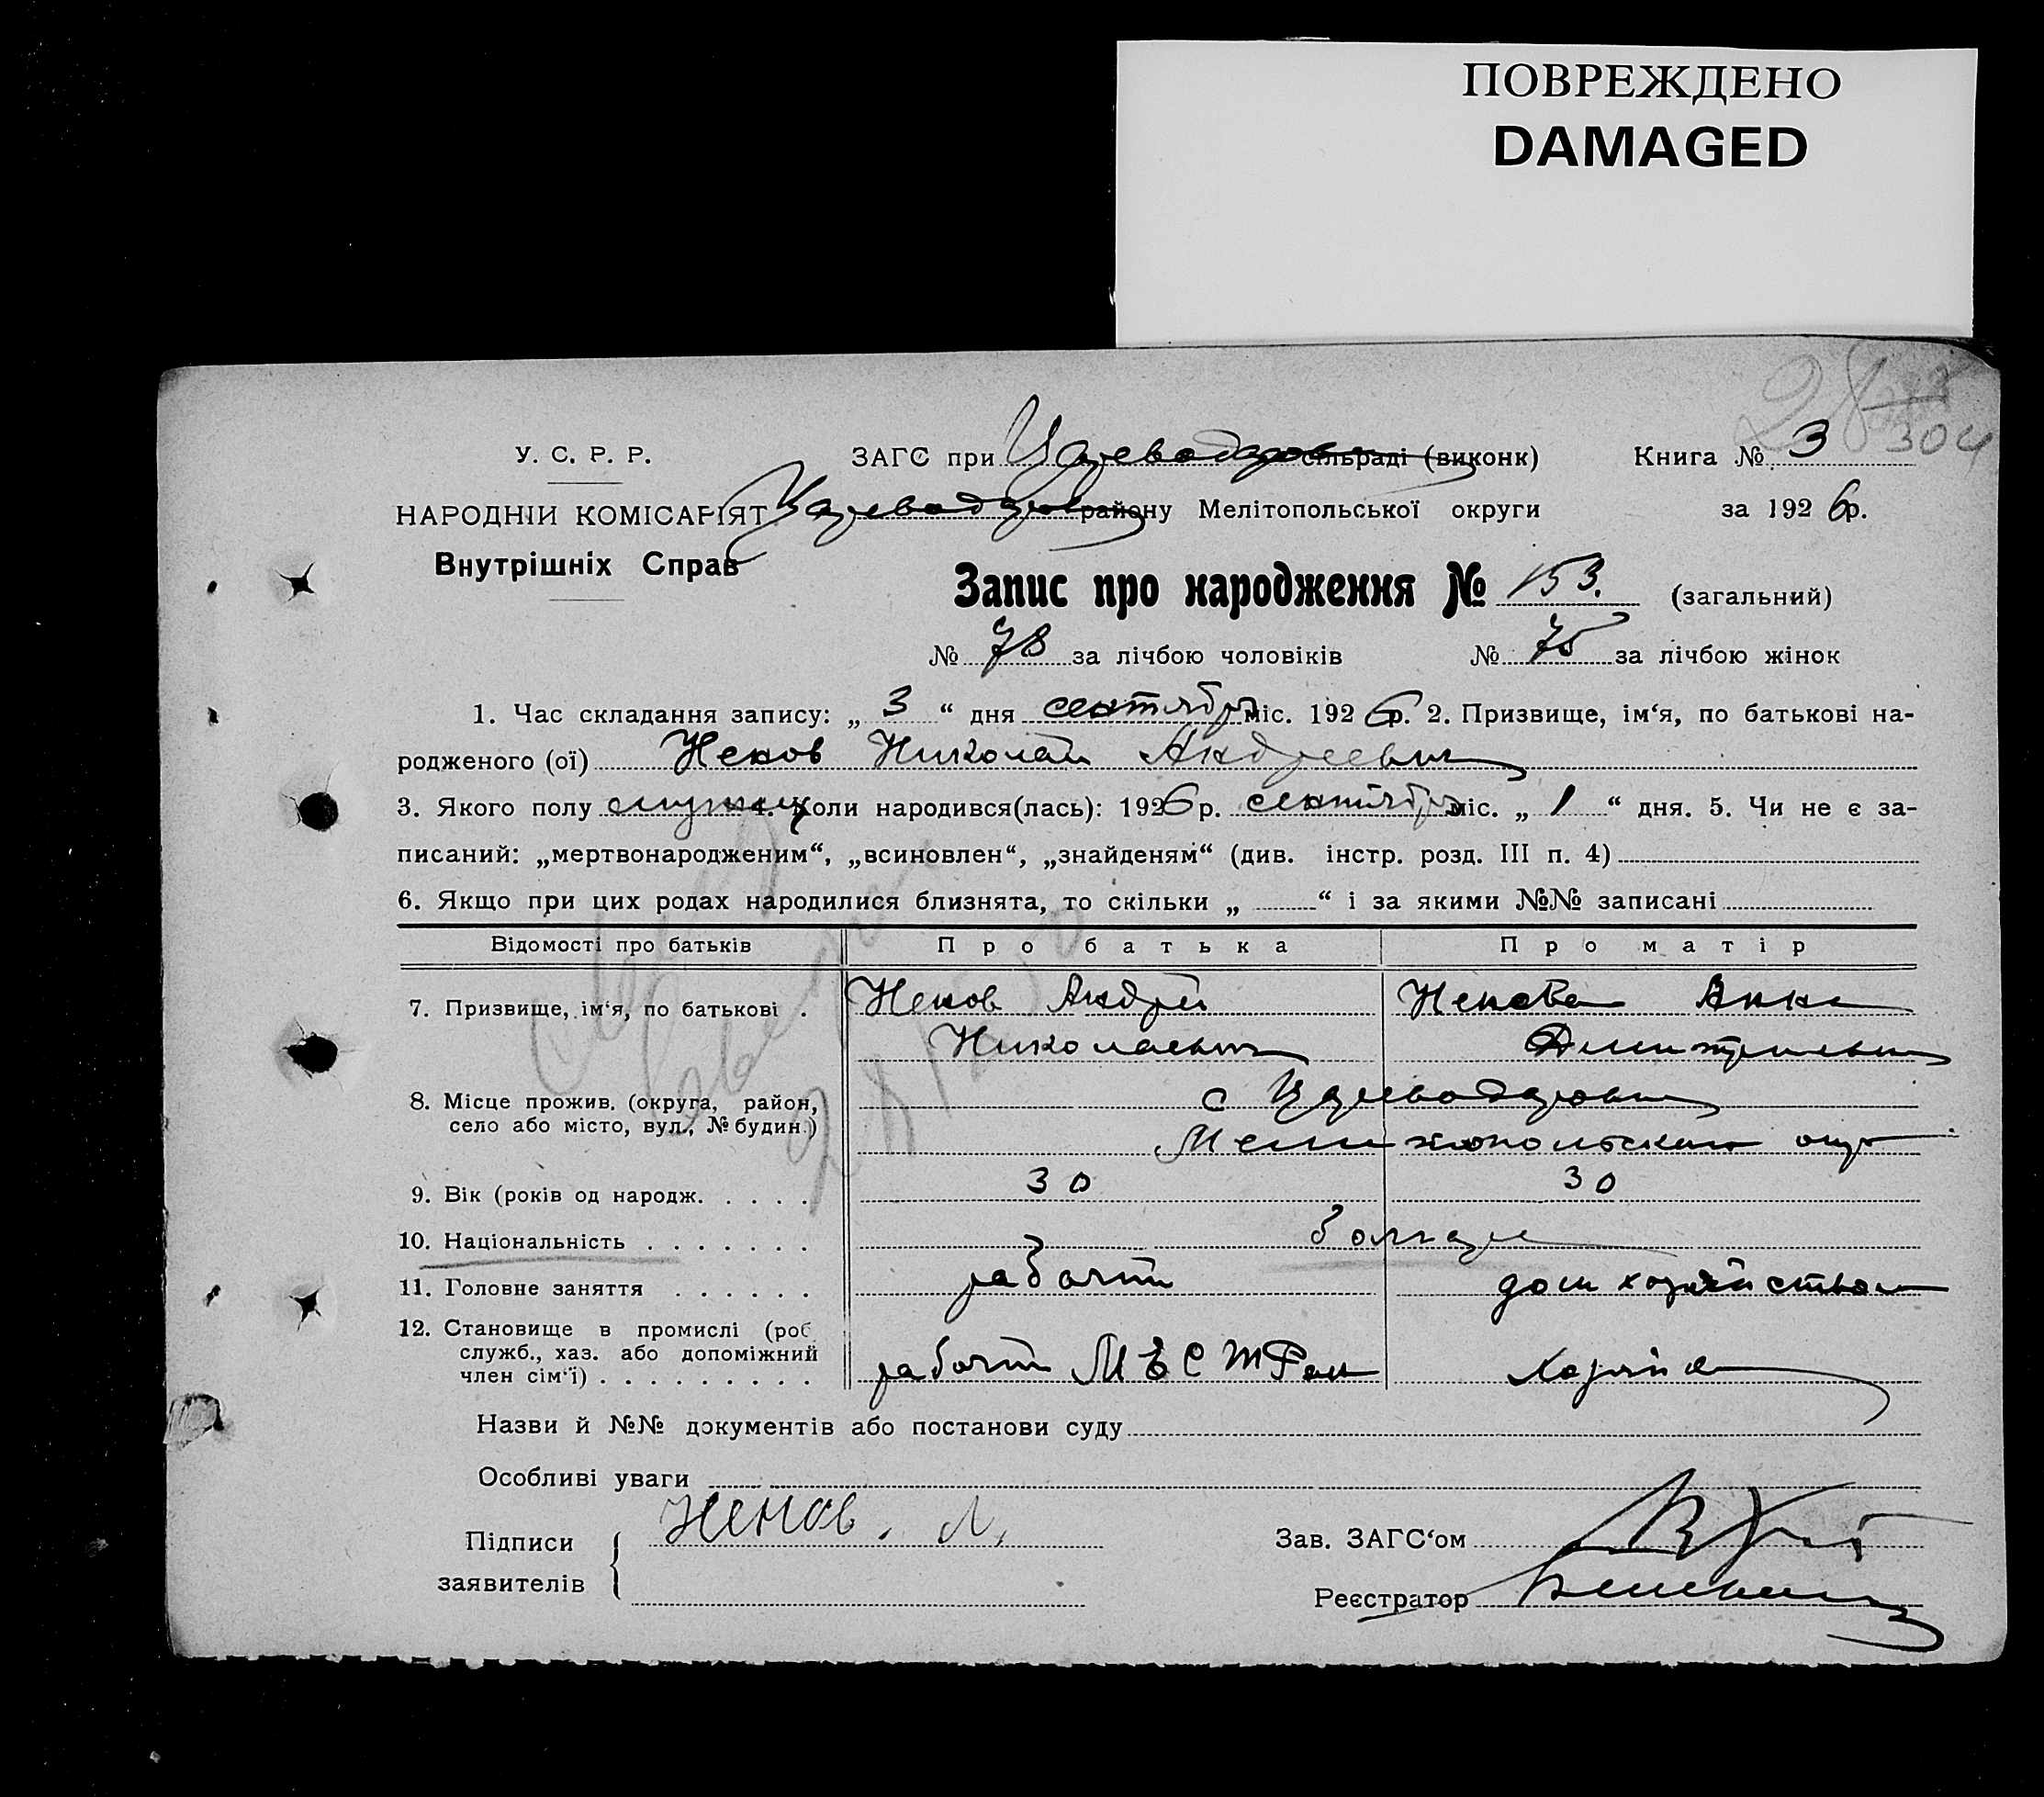 ПОВРЕЖДЕНО
DAMAGED
304
У. С. Р. Р. ЗАГС при Цареводаров сільраді (виконк) Книга № 3
НАРОДНІЙ КОМІСАРІЯТ Цареводаров району Мелітопольської округи за 1926 р.
Внутрішніх Справ
Запис про народження № 153. (загальний)
№ 78 за лічбою чоловіків № 75 за лічбою жінок
1. Час складання запису: „ 3 “ дня сентября міс. 1926 р. 2. Призвище, ім‘я, по батькові на-
родженого (ої) Ненов Николай Андреевич
3. Якого полу мужск 4. Коли народився(лась): 1926 р. сентября міс. „ 1 “ дня. 5. Чи не є за-
писаний: „мертвонародженим“, „всиновлен“, „знайденям“ (див. інстр. розд. III п. 4)
6. Якщо при цих родах народилися близнята, то скільки „ “ і за якими №№ записані
Відомості про батьків Про батька Про матір
7. Призвище, ім‘я, по батькові . Ненов Андрей Ненова Анна
Николаевич Дмитриевна
8. Місце прожив. (округа, район, с Цареводаровка
село або місто, вул., № будин.) Мелитопольского окр
9. Вік (років од народж. . . . . 30 30
10. Національність . . . . . . . болгаре
11. Головне заняття . . . . . . рабочий дом хозяйством
12. Становище в промислі (роб.
служб., хаз. або допоміжний
член сім‘ї) . . . . . . . . . рабочий хозяйка
Назви й №№ документів або постанови суду
Особливі уваги
Підписи Ненов. А.
заявителів
Зав. ЗАГС‘ом
Реєстратор